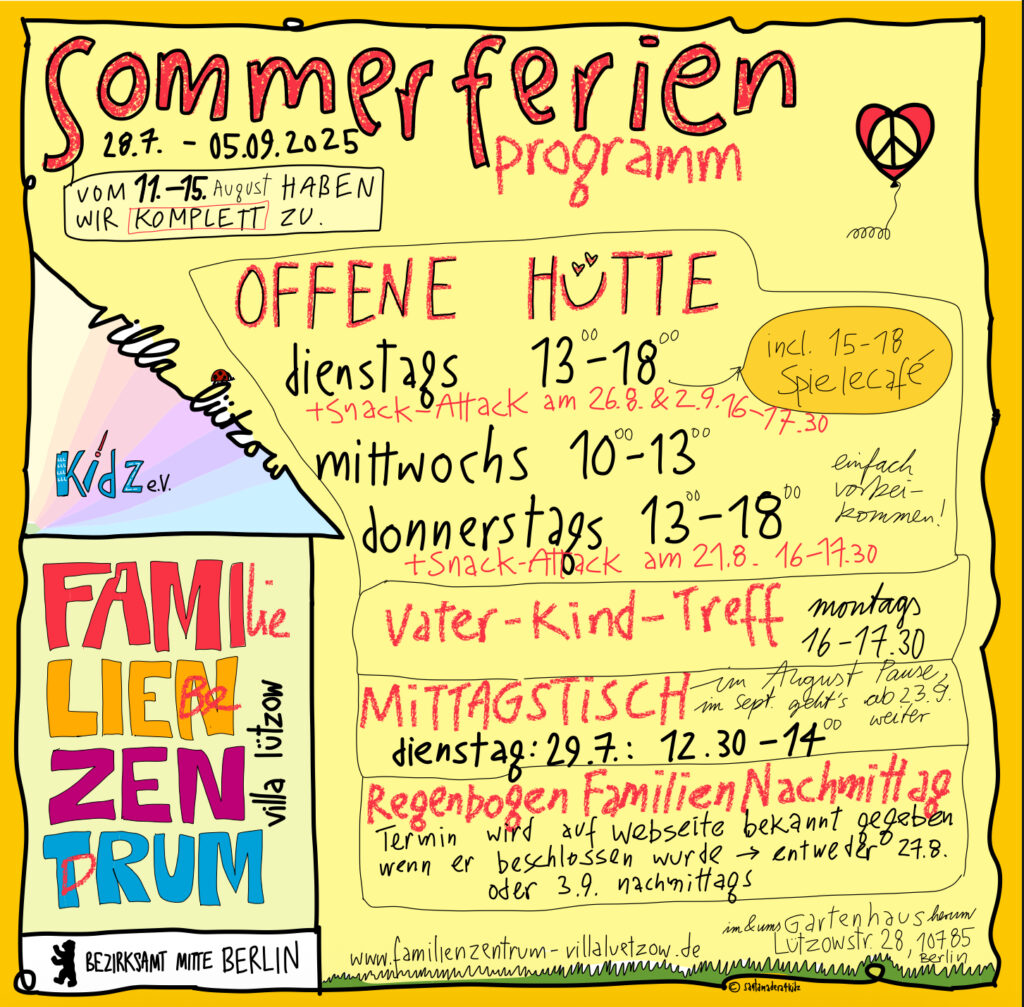 Sommerferien
programm
28.7. - 05.09.2025
VOM 11.-15. August HABEN
WIR KOMPLETT ZU.
OFFENE HÜTTE
dienstags 13⁰⁰-18⁰⁰
incl. 15-18
Spielecafé
+Snack-Attack am 26.8. & 2.9. 16-17.30
mittwochs 10⁰⁰-13⁰⁰
einfach
vorbei-
kommen!
donnerstags 13⁰⁰-18⁰⁰
+Snack-Attack am 21.8. 16-17.30
Vater-Kind-Treff montags
16-17.30
MITTAGSTISCH im August Pause,
im Sept. geht's ab 23.9.
weiter
dienstag: 29.7.: 12.30-14⁰⁰
Regenbogen Familien Nachmittag
Termin wird auf Webseite bekannt gegeben
wenn er beschlossen wurde → entweder 27.8.
oder 3.9. nachmittags
villa lützow
Kidz e.V.
FAMIlie
LIEN
Be
ZEN
TRUM
D
villa lützow
BEZIRKSAMT MITTE BERLIN
www.familienzentrum-villaluetzow.de
im & ums Gartenhaus herum
Lützowstr. 28, 10785
Berlin